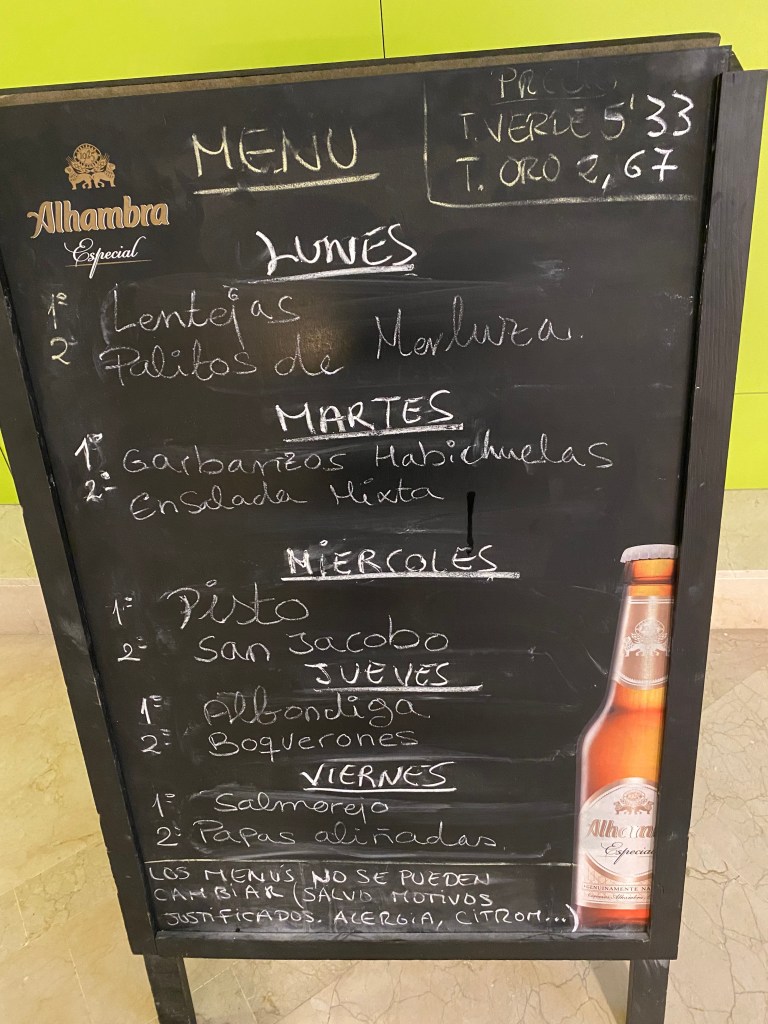 MENU
T. VERDE 5'33
T. ORO 2,67
Alhambra
Especial
LUNES
1º Lentejas
2º Palitos de Merluza.
MARTES
1º Garbanzos Habichuelas
2º Ensalada Mixta
MIERCOLES
1º Pisto
2º San Jacobo
JUEVES
1º Albondiga
2º Boquerones
VIERNES
1º Salmorejo
2º Papas aliñadas.
LOS MENÚS NO SE PUEDEN
CAMBIAR (SALVO MOTIVOS
JUSTIFICADOS. ALERGIA, CITROM...)
Especial